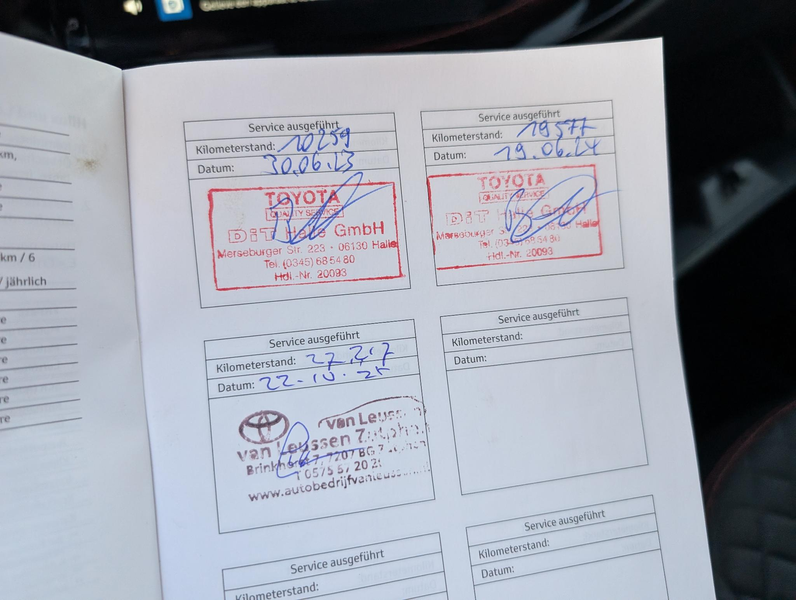 km,
km / 6
/ jährlich
Service ausgeführt
Kilometerstand: 10259
Datum: 30.06.23
TOYOTA
QUALITY SERVICE
DiT Halle GmbH
Merseburger Str. 223 - 06130 Halle
Tel. (0345) 68 54 80
Hdl.-Nr. 20093
Service ausgeführt
Kilometerstand: 19577
Datum: 19.06.24
TOYOTA
QUALITY SERVICE
DiT Halle GmbH
Merseburger Str. 223 - 06130 Halle
Tel. (0345) 68 54 80
Hdl.-Nr. 20093
Service ausgeführt
Kilometerstand:
Datum: 22-10-25
van Leussen
van Leussen Zutphen
7207 BG Zutphen
T 0575 57 20 2
www.autobedrijfvanleussen
Service ausgeführt
Kilometerstand:
Datum:
Service ausgeführt
Kilometerstand:
Service ausgeführt
Kilometerstand:
Datum: